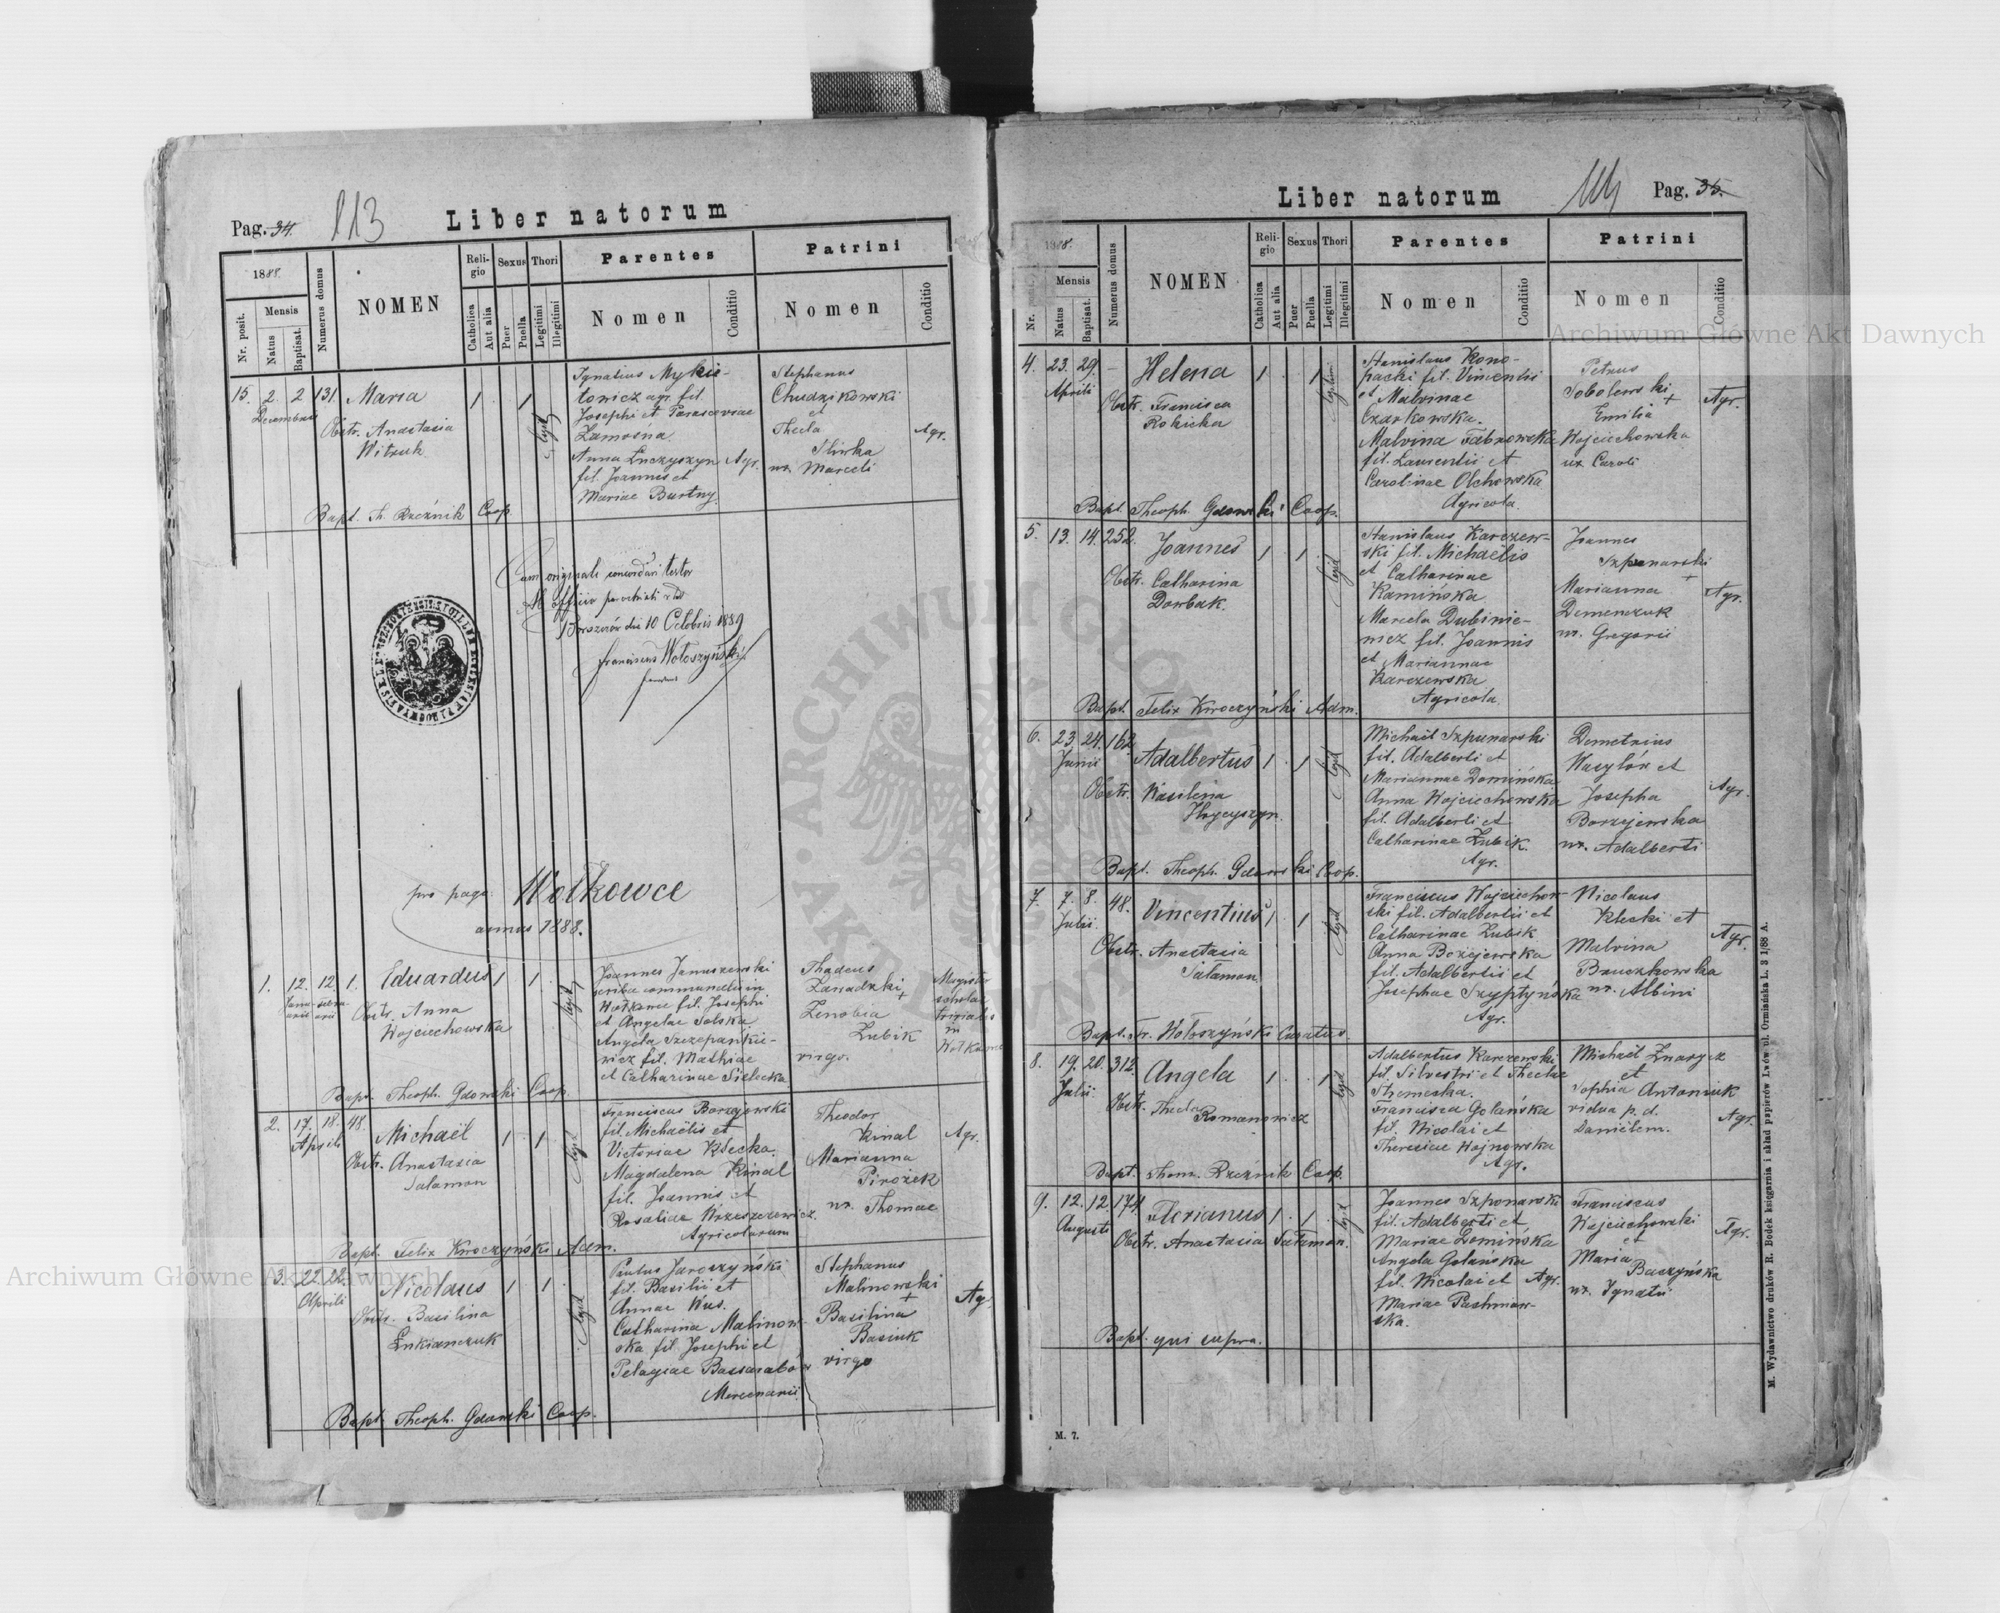 Pag. 34.
113
Liber natorum
1888.
Mensis
Nr. posit.
Natus
Baptisat.
Numerus domus
NOMEN
Reli-
gio
Sexus
Thori
Catholica
Aut alia
Puer
Puella
Legitimi
Illegitimi
Parentes
Nomen
Conditio
Patrini
Nomen
Conditio
15. 2. 2 131. Maria 1 1 legit
Decembris
Obstr. Anastasia
Witruk
Ignatius Mykie-
towicz agr. fil.
Josephi et Parasceviae
Zamośna.
Anna Łuczyszyn Agr.
fil. Joannis et
Mariae Burtny.
Stephanus
Chudzikowski
et
Thecla
Śliwka
ux. Marceli
Agr.
Bapt. Th. Rzeźnik Coop.
Cum originali concordari testor
Ab officio parochiali r. lat.
Borszczów die 10 Octobris 1889
Franciscus Wołoszyński
pro pago: Wołkowce
annus 1888.
1. 12. 12. 1. Eduardus 1 1 legit
Janu-
arii
Febru-
arii
Obstr. Anna
Wojciechowska
Joannes Januszewski
scriba communalis in
Wołkowce fil. Josephi
et Angelae Solska
Angela Szczepankie-
wicz fil. Mathiae
et Catharinae Sielecka
Thadeus
Zawadzki +
Zenobia
Zubik
virgo.
Magister
scholae
trivialis
in
Wołkowce
Bapt. Theoph. Gdowski Coop.
2. 17. 18. 48. Michaël 1 1 legit
Aprili
Obstr. Anastasia
Salamon
Franciscus Borzejowski
fil. Michaëlis et
Victoriae Klecka.
Magdalena Kinal
fil. Joannis et
Rosaliae Wrzeszczewicz.
Agricolarum
Theodor
Kinal
Marianna
Pirożek
ux. Thomae
Agr.
Bapt. Felix Kroczyński Adm.
3. 22. 22. Nicolaus 1 1 legit
Aprili
Obstr. Basilina
Łukianczuk
Paulus Jaroszyński
fil. Basilii et
Annae Kus.
Catharina Malinow-
ska fil. Josephi et
Pelagiae Bassarabów
Mercenarii
Stephanus
Malinowski
+
Basilina
Basiuk
virgo
Agr.
Bapt. Theoph. Gdowski Coop.
Liber natorum
114
Pag. 35.
1888.
Mensis
Nr.
Natus
Baptisat.
Numerus domus
NOMEN
Reli-
gio
Sexus
Thori
Catholica
Aut alia
Puer
Puella
Legitimi
Illegitimi
Parentes
Nomen
Conditio
Patrini
Nomen
Conditio
4. 23. 29. – Helena 1 1 legitim
Aprili
Obstr. Francisca
Rokicka
Stanislaus Kono-
packi fil. Vincentii
et Malvinae
Czarkowska.
Malvina Tabrowska
fil. Laurentii et
Carolinae Olchowska
Agricola.
Petrus
Sobolewski
+
Emilia
Wojciechowska
ux Caroli
Agr.
Bapt. Theoph. Gdowski Coop.
5. 13. 14. 252. Joannes 1 1 legit
Obstr. Catharina
Dorbak.
Stanislaus Karczew-
ski fil. Michaëlis
et Catharinae
Kamińska
Marcela Dubinie-
wicz fil. Joannis
et Mariannae
Karczewska
Agricola.
Joannes
Szpunarski
+
Marianna
Demenczuk
ux. Gregorii
Agr.
Bapt. Felix Kroczyński Adm.
6. 23. 24. 162 Adalbertus 1 1 legit
Junii
Obstr. Wasilena
Hrycyszyn.
Michaël Szpunarski
fil. Adalberti et
Mariannae Domińska
Anna Wojciechowska
fil. Adalberti et
Catharinae Zubik.
Agr.
Demetrius
Wasylów et
Josepha
Borzejewska
ux. Adalberti
Agr.
Bapt. Theoph. Gdowski Coop.
7. 7. 8. 48. Vincentius 1 1 legit
Julii
Obstr. Anastasia
Salamon.
Franciscus Wojciechow-
ski fil. Adalbertii et
Catharinae Zubik
Anna Bożejewska
fil. Adalbertii et
Josephae Szyptyńska
Agr.
Nicolaus
Klecki et
Malvina
Bruczkowska
ux. Albini
Agr.
Bapt. Fr. Wołoszyński Curatus.
8. 19. 20. 312. Angela 1 1 legit
Julii
Obstr. Thecla
Romanowicz
Adalbertus Karczewski
fil. Silvestri et Theclae
Francisca Golańska
fil. Nicolai et
Theresiae Wojnowska
Agr.
Michaël Znaryez
et
Sophia Antoniuk
vidua p. d.
Daniëlem.
Agr.
Bapt. Thom. Rzeźnik Coop.
9. 12. 12. 174. Florianus 1 1 legit
Augusti
Obstr. Anastasia Salamon.
Joannes Szponarski
fil. Adalberti et
Mariae Domińska
Angela Golańska
fil. Nicolai et Agr.
Mariae Pashniow-
ska.
Franciscus
Wojciechowski
et
Maria
Baczyńska
ux. Ignatii
Agr.
Bapt. qui supra.
M. 7.
M. Wydawnictwo druków R. Bodek księgarnia i skład papierów Lwów ul. Ormiańska L. 3 1/88 A.
Archiwum Główne Akt Dawnych
Archiwum Główne Akt Dawnych